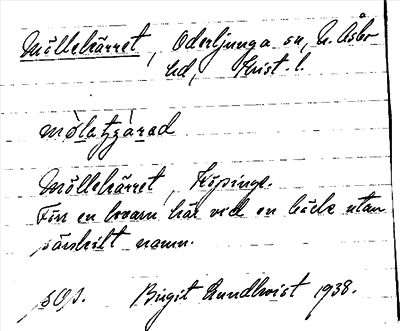 Möllekärret, Oderljunga sn, N. Åsbo
hd, Krist. l.
Möllekärret, Köpinge.
Förr en kvarn här vid en bäck utan
särskilt namn.
sOp. Birgit Lundkvist 1938.